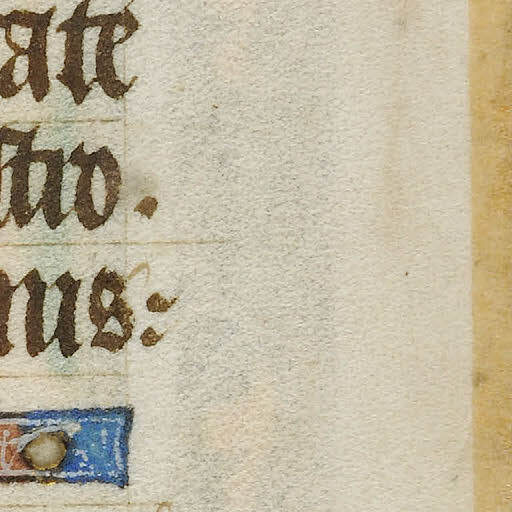 ate
stro.
nus: